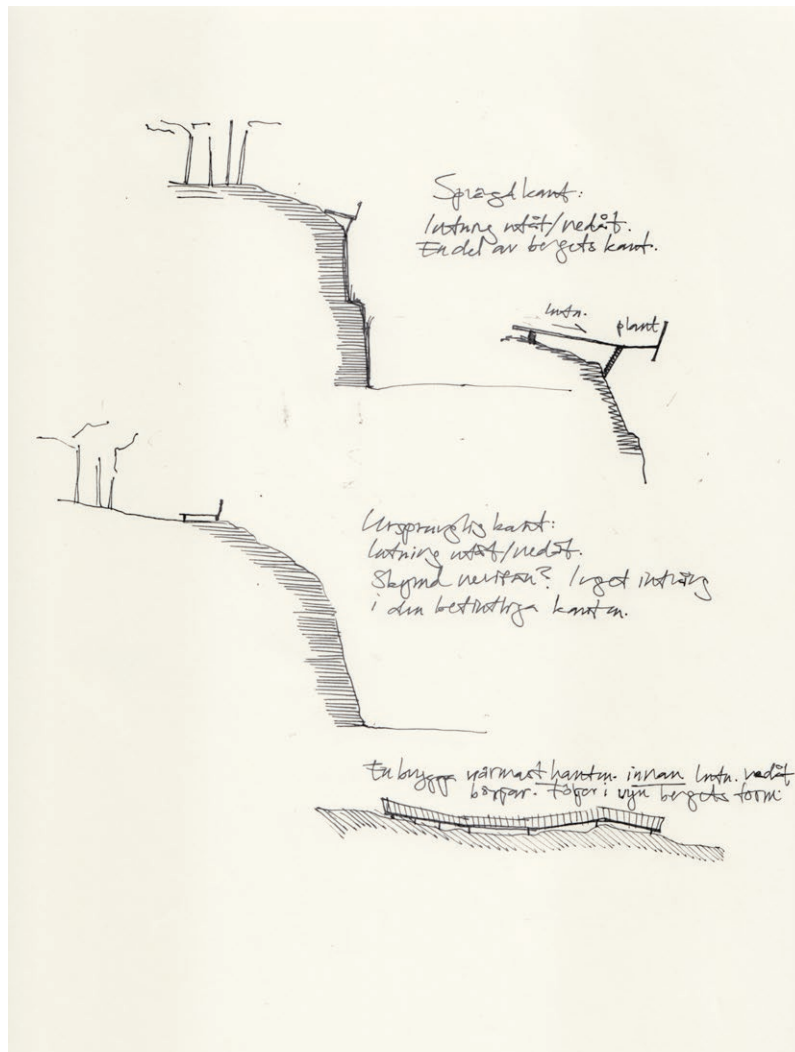 Sprängd kant:
lutning utåt/nedåt.
En del av bergets kant.
lutn.
plant
Ursprunglig kant:
lutning utåt/nedåt.
Skymd nerifrån? Inget intrång
i den befintliga kanten.
En brygga närmast kanten innan lutn. nedåt
börjar. Följer i vyn bergets form.